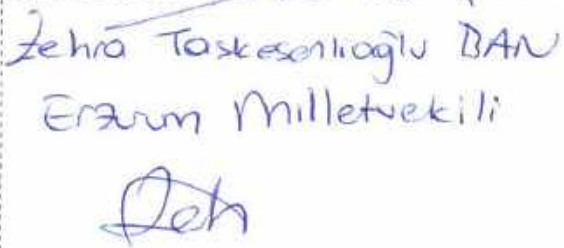 Zehra Taskesenlioğlu BAN
Erzurum Milletvekili
Zeh